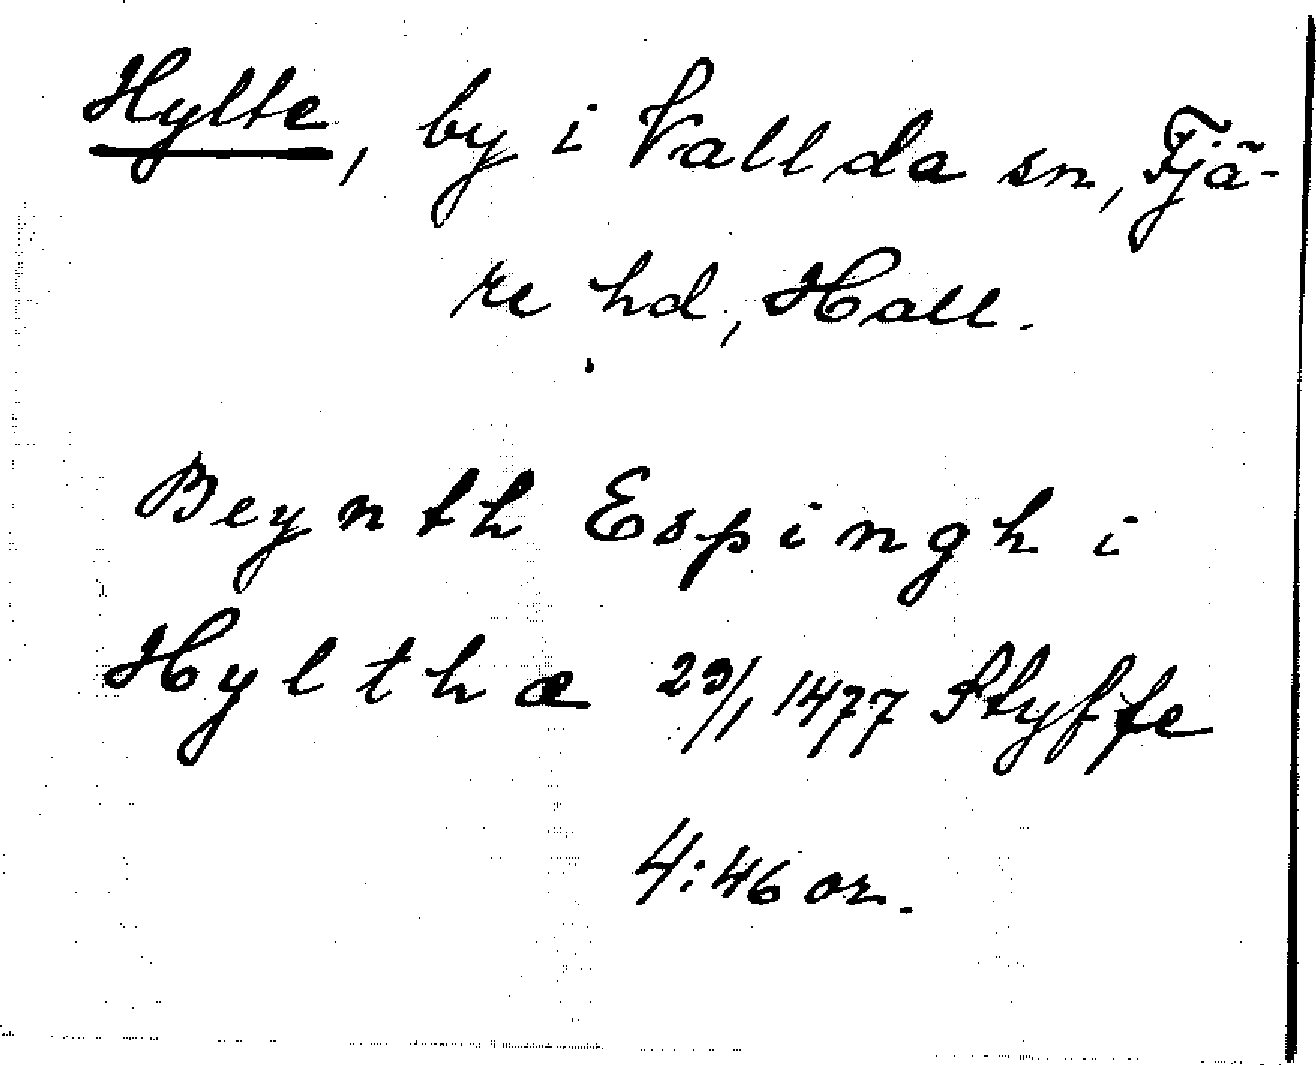 Hylte, by i Vallda sn, Fjä-
re hd, Hall.
Beynth Espingh i
Hylthæ 29/1 1477 Styffe
4:46 or.